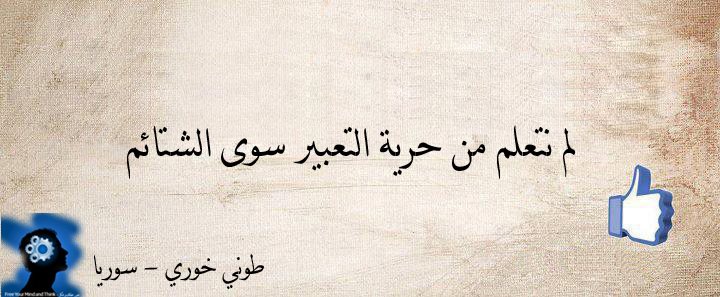 لم نتعلم من حرية التعبير سوى الشتائم
طوني خوري – سوريا
Free Your Mind and Think